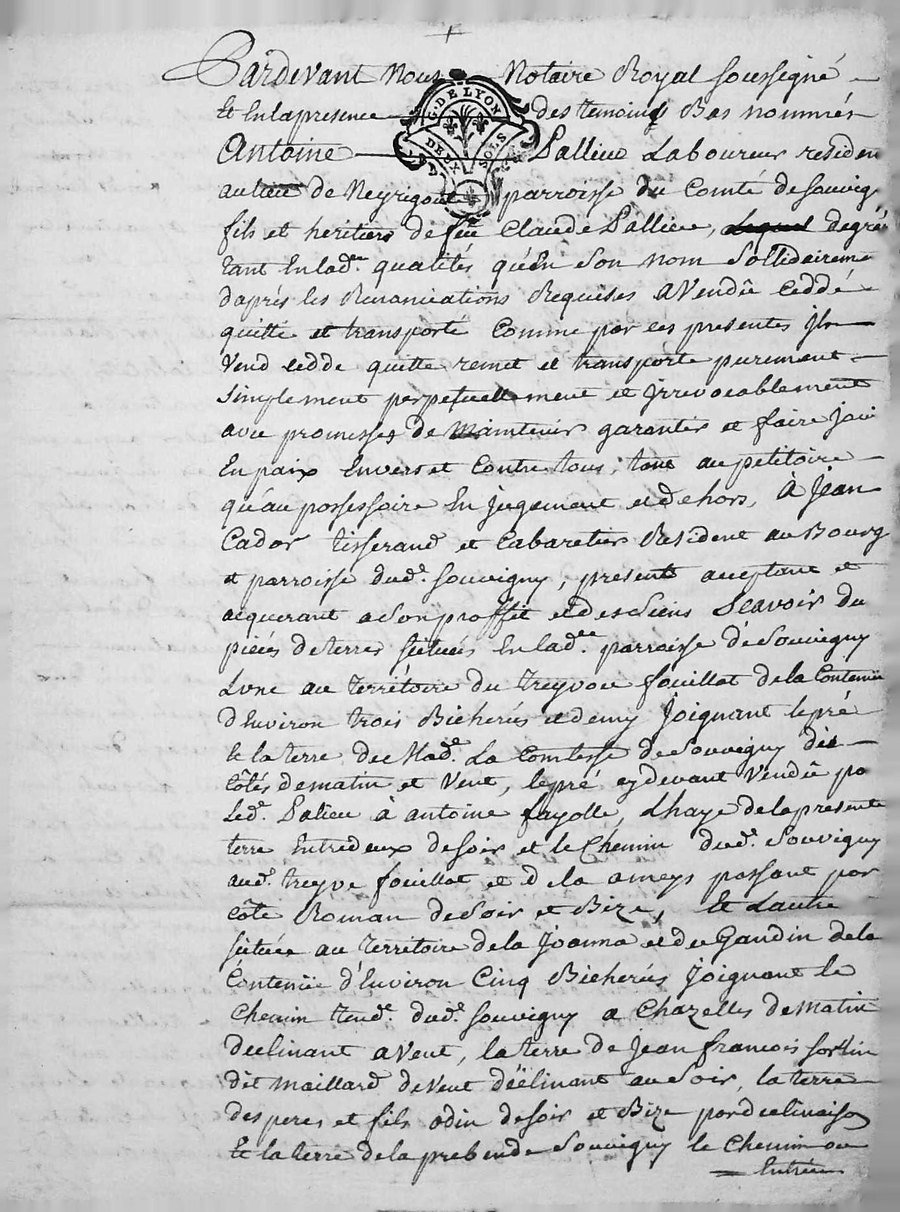 Pardevant Nous Notaire Royal soussigné
Et En la presence des temoins Bas nommés
G. DE LYON
DEUX SOLS
Antoine Pallieu Laboureur residen
au lieu de Neyrigout parroisse du Comté de souvig
fils et heritiers de feu Claude Pallieu, degré
tant En lad.e qualités qu'En son nom sollidaireme
d'aprés les Renanciations Requises a Vendû ceddé
quitté et transporté Comme par ces presentes Il
Vend cedde quitte remet et transporte purement
simplement perpetuellement et Irrevocablement
avec promesses de Maintenir garantir et faire Joui
En paix Envers et Contre tous, tant au petitoire
qu'au possessoire En Jugement et dehors, A Jean
Cador tisserand et Cabaretier Resident au Bourg
et parroisse dud.t souvigny, present acceptant et
acquerant a son proffit et des siens Scavoir du
piéces de terres situées En lad.e parroisse de Souvigny
Lune au territoire du treyvou fouillat de la Contenüe
d'Environ trois Bicherées et demy Joignant le pré
Et la terre de Mad.e La Comtesse de Souvigny des
côtés de matin et Vent, le pré cy devant Vendû pa
Led.t Palieu à antoine fayolle, Lhaye de la presente
terre Entredeux de soir et le Chemin dud.t Souvigny
aud.t treyve fouillat et de la ameys passant par
côte Roman de Soir et Bize, Et Lautre
située au territoire de la Joanna et du Gandin de la
Contenüe d'Environ Cinq Bicherées Joignant le
Chemin tend.t dud.t souvigny a Chazelles de Matin
declinant a Vent, la terre de Jean francois
dit Maillard de Vent déclinant au Soir, la terre
des peres et fils odin de soir et Bize par declinaison
Et la terre de la prebende Souvigny le Chemin ou
Entrée